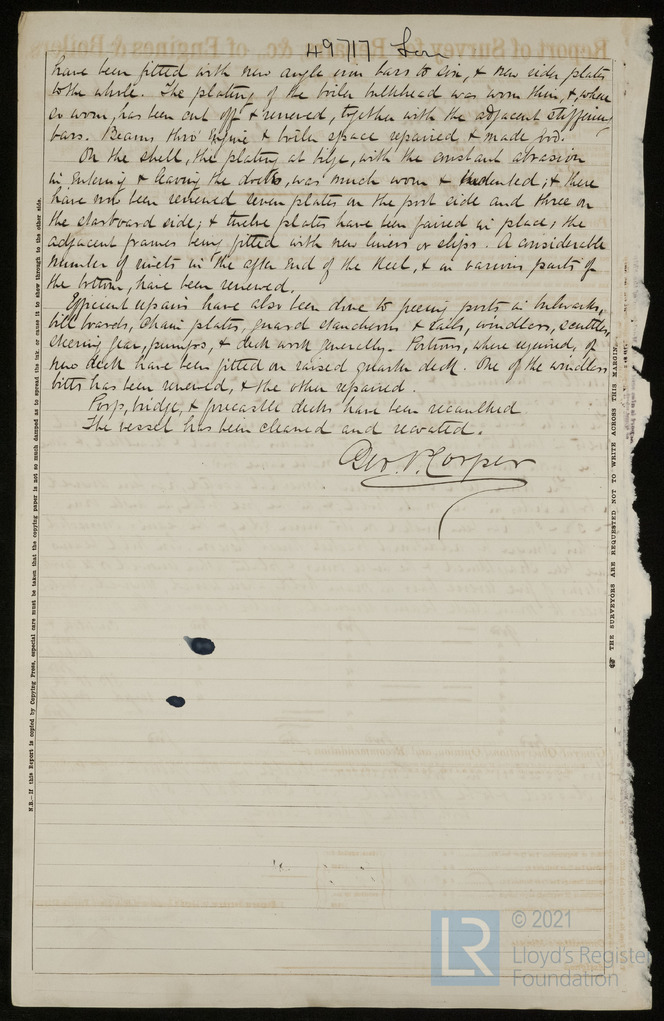 49717 Lon
have been fitted with new angle iron bars to six, & new side plates
to the whole. The plating of the boiler bulkhead was worn thin, & where
so worn, has been cut off & renewed, together with the adjacent stiffening
bars. Beams thro' engine & boiler space repaired & made good.
On the shell, the plating at bilge, with the constant abrasion
in entering & leaving the docks, was much worn & indented; & there
have now been renewed seven plates on the port side and three on
the starboard side; & twelve plates have been faired in place; the
adjacent frames being fitted with new liners or slips. A considerable
number of rivets in the after end of the keel, & in various parts of
the bottom, have been renewed.
Efficient repairs have also been done to freeing ports in bulwarks,
bill boards, chain plates, guard stanchions & rails, windlass, scuttles,
steering gear, pumps, & deck work generally. Portions, where required, of
new deck have been fitted on raised quarter deck. One of the windlass
bitts has been renewed, & the other repaired.
Poop, bridge, & forecastle decks have been recaulked.
The vessel has been cleaned and recoated.
Geo. P. Corper
N.B.—If this Report is copied by Copying Press, especial care must be taken that the copying paper is not so much damped as to spread the ink or cause it to show through to the other side.
THE SURVEYORS ARE REQUESTED NOT TO WRITE ACROSS THIS MARGIN.
Report of Survey for Repairs, &c., of Engines & Boilers
LR
© 2021
Lloyd's Register
Foundation